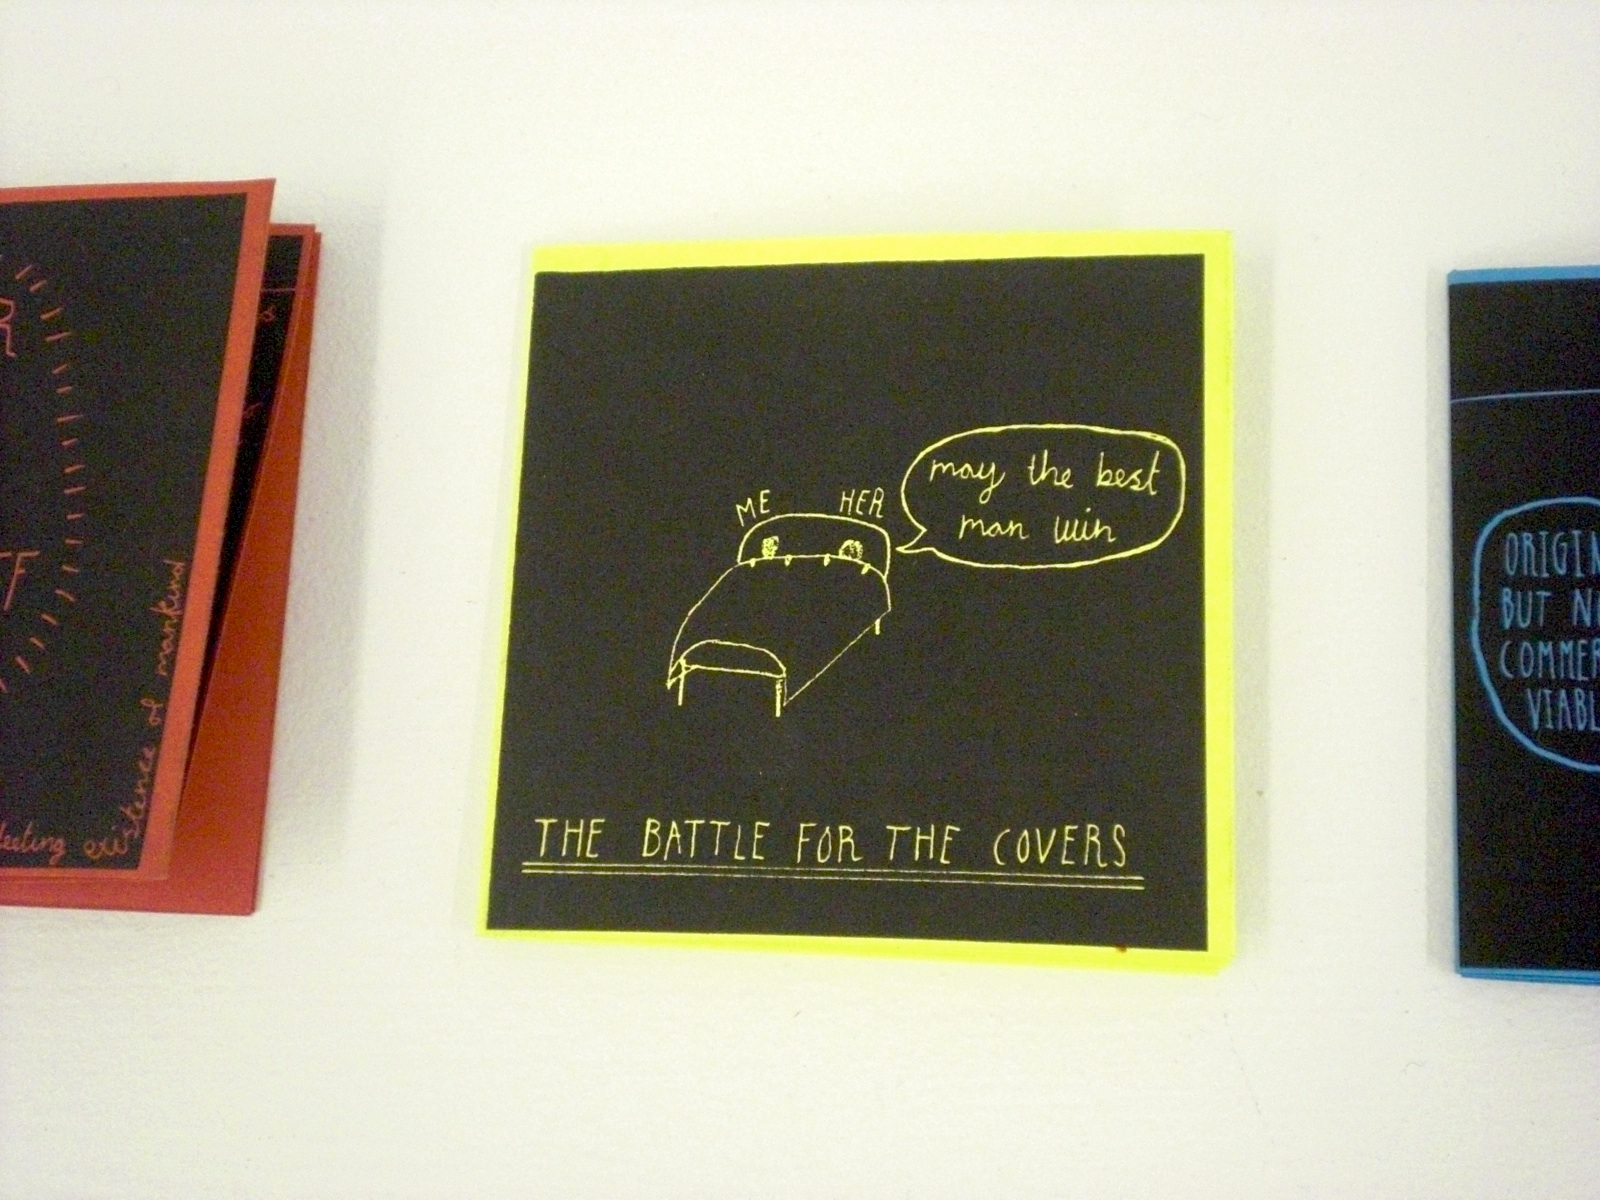 R
FF
fleeting existence of mankind
ME HER
may the best
man win
THE BATTLE FOR THE COVERS
ORIGIN
BUT N
COMMER
VIABL